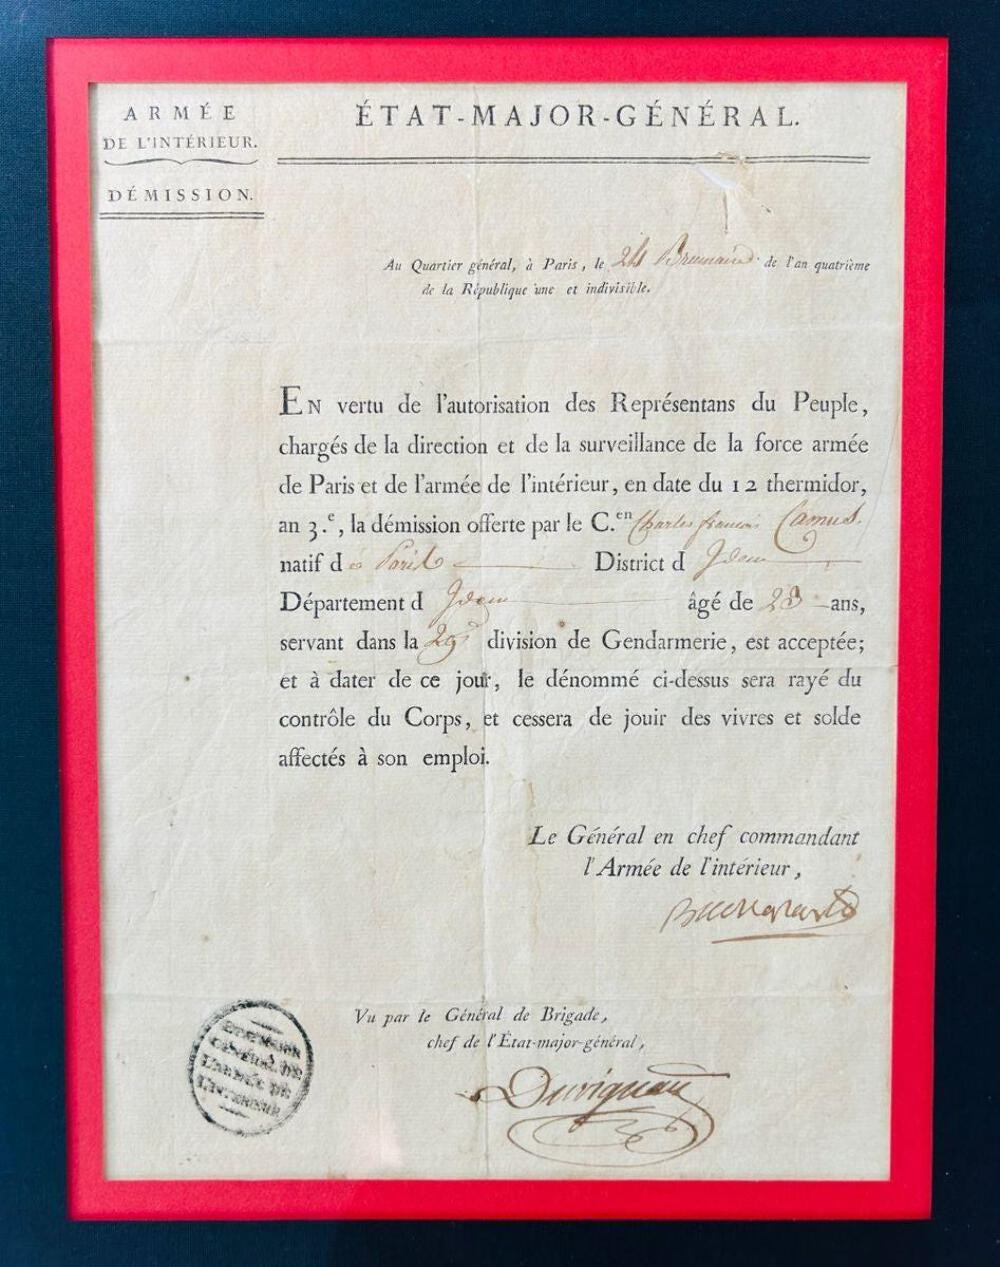 ARMÉE
DE L'INTÉRIEUR.
DÉMISSION.
ÉTAT-MAJOR-GÉNÉRAL.
Au Quartier général, à Paris, le 24 Brumaire de l'an quatrième
de la République une et indivisible.
EN vertu de l'autorisation des Représentans du Peuple,
chargés de la direction et de la surveillance de la force armée
de Paris et de l'armée de l'intérieur, en date du 12 thermidor,
an 3.e, la démission offerte par le C.en Charles françois Camus.
natif de Paris District d Idem
Département d Idem âgé de 23 ans,
servant dans la 29e division de Gendarmerie, est acceptée;
et à dater de ce jour, le dénommé ci-dessus sera rayé du
contrôle du Corps, et cessera de jouir des vivres et solde
affectés à son emploi.
Le Général en chef commandant
l'Armée de l'intérieur,
Buonaparte
Vu par le Général de Brigade,
chef de l'État-major-général,
Duvigneau
ÉTAT-MAJOR
GÉNÉRAL DE
L'ARMÉE DE
L'INTÉRIEUR